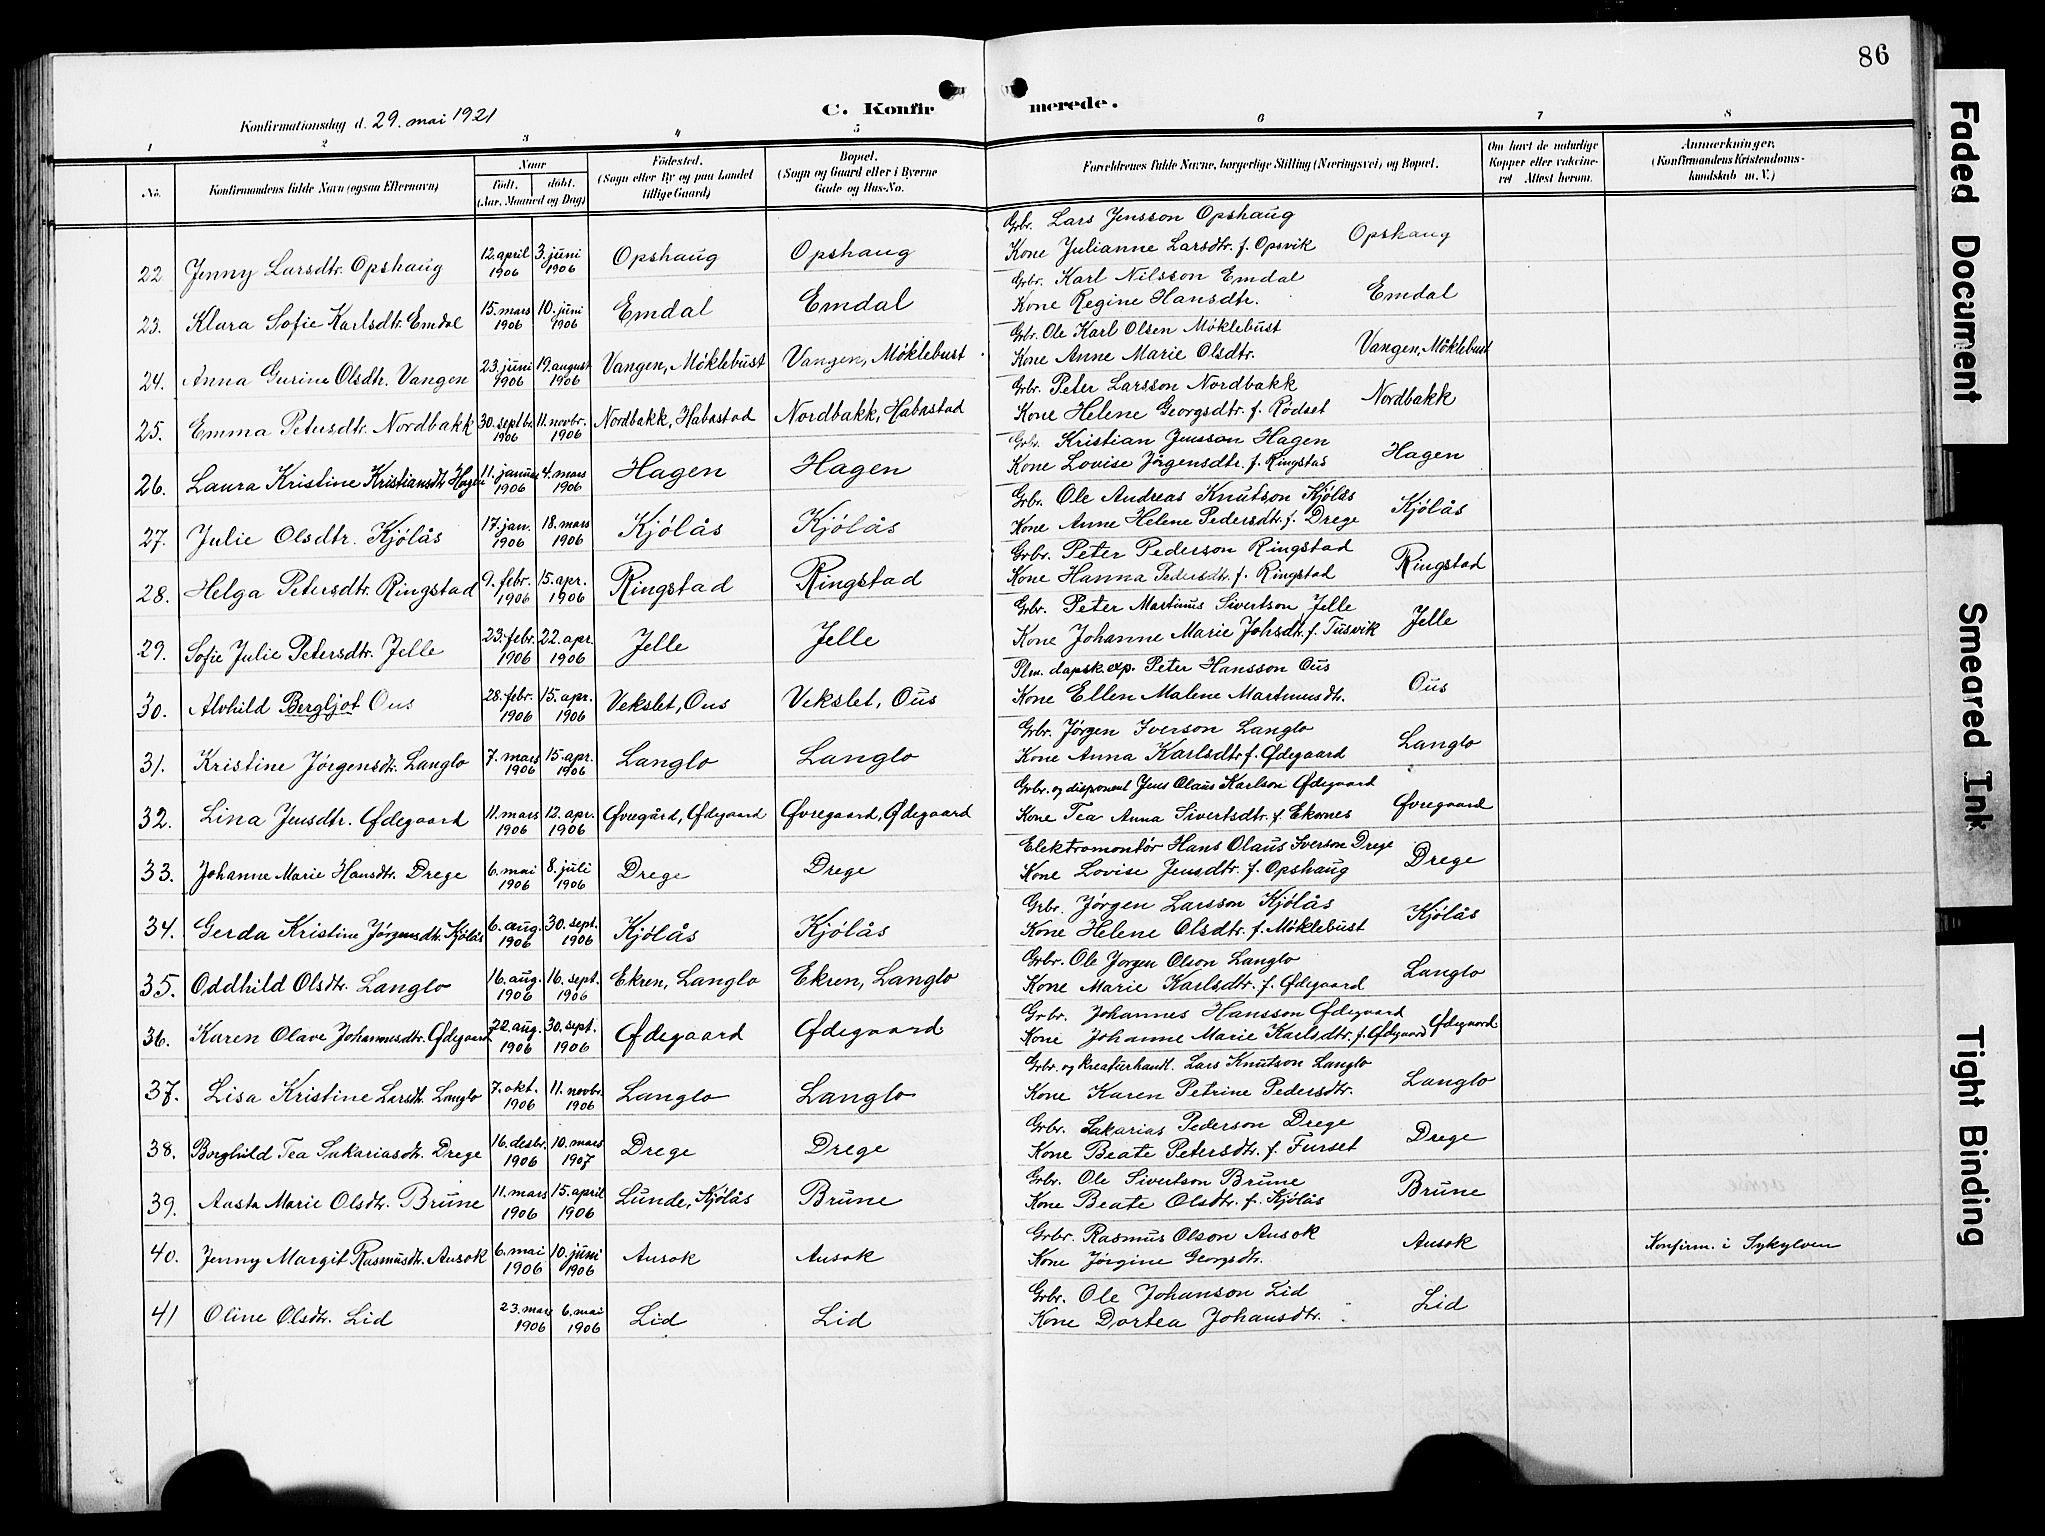 86
Konfirmationsdag d. 29. mai 1921
C. Konfirmerede.
1 2 3 4 5 6 7 8
No. Konfirmandens fulde Navn (ogsaa Efternavn) Naar Född. döbt. (Aar, Maaned og Dag) Födested. (Sogn eller By og paa Landet tillige Gaard) Bopæl. (Sogn og Gaard eller i Byerne Gade og Hus-No. Forældrenes fulde Navne, borgerlige Stilling (Næringsvei) og Bopæl. Om havt de naturlige Kopper eller vakcineret Attest herom. Anmerkninger, (Konfirmandens Kristendomskundskab m. V.)
22 Jenny Larsdtr. Opshaug 12. april 1906 3. juni 1906 Opshaug Opshaug Grbr. Lars Jensson Opshaug Opshaug
Kone Julianne Larsdtr. f. Opsvik
23. Klara Sofie Karlsdtr. Emdal 15. mars 1906 10. juni 1906 Emdal Emdal Grbr. Karl Nilsson Emdal Emdal
Kone Regine Hansdtr.
24. Anna Gurine Olsdtr. Vangen 23. juni 1906 19. august 1906 Vangen, Möklebust Vangen, Möklebust Grbr. Ole Karl Olsen Möklebust Vangen, Möklebust
Kone Anne Marie Olsdtr.
25. Emma Petersdtr. Nordbakk 30. septbr. 1906 11. novbr. 1906 Nordbakk, Habostad Nordbakk, Habostad Grbr. Peter Larsson Nordbakk Nordbakk
Kone Helene Georgsdtr. f. Rödset
26. Laura Kristine Kristiansdtr Hagen 11. januar 1906 4. mars 1906 Hagen Hagen Grbr. Kristian Jensson Hagen Hagen
Kone Lovise Jörgensdtr. f. Ringstad
27. Julie Olsdtr. Kjölås 17. jan. 1906 18. mars 1906 Kjölås Kjölås Grbr. Ole Andreas Knutson Kjölås Kjölås
Kone Anne Helene Pedersdtr. f. Drege
28. Helga Petersdtr. Ringstad 9. febr. 1906 15. apr. 1906 Ringstad Ringstad Grbr. Peter Pederson Ringstad Ringstad
Kone Hanna Pedersdtr. f. Ringstad
29. Sofie Julie Petersdtr. Jelle 23. febr. 1906 22. apr. 1906 Jelle Jelle Grbr. Peter Martinus Sivertson Jelle Jelle
Kone Johanne Marie Johsdtr. f. Tusvik
30. Alvhild Bergljot Ous 28. febr. 1906 15. apr. 1906 Vekslet, Ous Vekslet, Ous dapsk.exp. Peter Hansson Ous Ous
Kone Ellen Malene Martinusdtr.
31. Kristine Jørgensdtr. Langlo 7. mars 1906 15. apr. 1906 Langlo Langlo Grbr. Jørgen Iverson Langlo Langlo
Kone Anna Karlsdtr f. Ødegaard
32. Lina Jensdtr. Ødegaard 11. mars 1906 12. apr. 1906 Øvregård, Ødegaard Øvregaard, Ødegaard Grbr. og disponent Jens Olaus Karlson Ødegaard Øvregaard
Kone Tea Anna Sivertsdtr. f. Ekornes
33. Johanne Marie Hansdtr. Drege 6. mai 1906 8. juli 1906 Drege Drege Elektromontør Hans Olaus Iverson Drege Drege
Kone Lovise Jensdtr. f. Opshaug
34. Gerda Kristine Jörgensdtr. Kjölås 6. aug. 1906 30. sept. 1906 Kjölås Kjölås Grbr. Jörgen Larsson Kjölås Kjölås
Kone Helene Olsdtr. f. Möklebust
35. Oddhild Olsdtr. Langlo 16. aug. 1906 16. sept. 1906 Ekren, Langlo Ekren, Langlo Grbr. Ole Jorgen Olson Langlo Langlo
Kone Marie Karlsdtr. f. Ødegaard
36. Karen Olave Johannesdtr. Ødegaard 22. aug. 1906 30. sept. 1906 Ødegaard Ødegaard Grbr. Johannes Hansson Ødegaard Ødegaard
Kone Johanne Marie Karlsdtr. f. Ødegaard
37. Lisa Kristine Larsdtr. Langlo 7. okt. 1906 11. novbr. 1906 Langlo Langlo Grbr. og kreaturhandl. Lars Knutson Langlo Langlo
Kone Karen Petrine Pedersdtr.
38. Borghild Tea Sakariasdtr. Drege 16. desbr. 1906 10. mars 1907 Drege Drege Grbr. Sakarias Pederson Drege Drege
Kone Beate Petersdtr. f. Furset
39. Aasta Marie Olsdtr. Brune 11. mars 1906 15. april 1906 Lunde, Kjölås Brune Grbr. Ole Sivertson Brune Brune
Kone Beate Olsdtr. f. Kjölås
40. Jenny Margit Rasmusdtr. Ansok 6. mai 1906 10. juni 1906 Ansok Ansok Grbr. Rasmus Olson Ansok Ansok Konfirm. i Sykylven
Kone Jörgine Georgsdtr.
41 Oline Olsdtr. Lid 23. mars 1906 6. mai 1906 Lid Lid Grbr. Ole Johanson Lid Lid
Kone Dortea Johansdtr.
Faded Document
Smeared Ink
Tight Binding